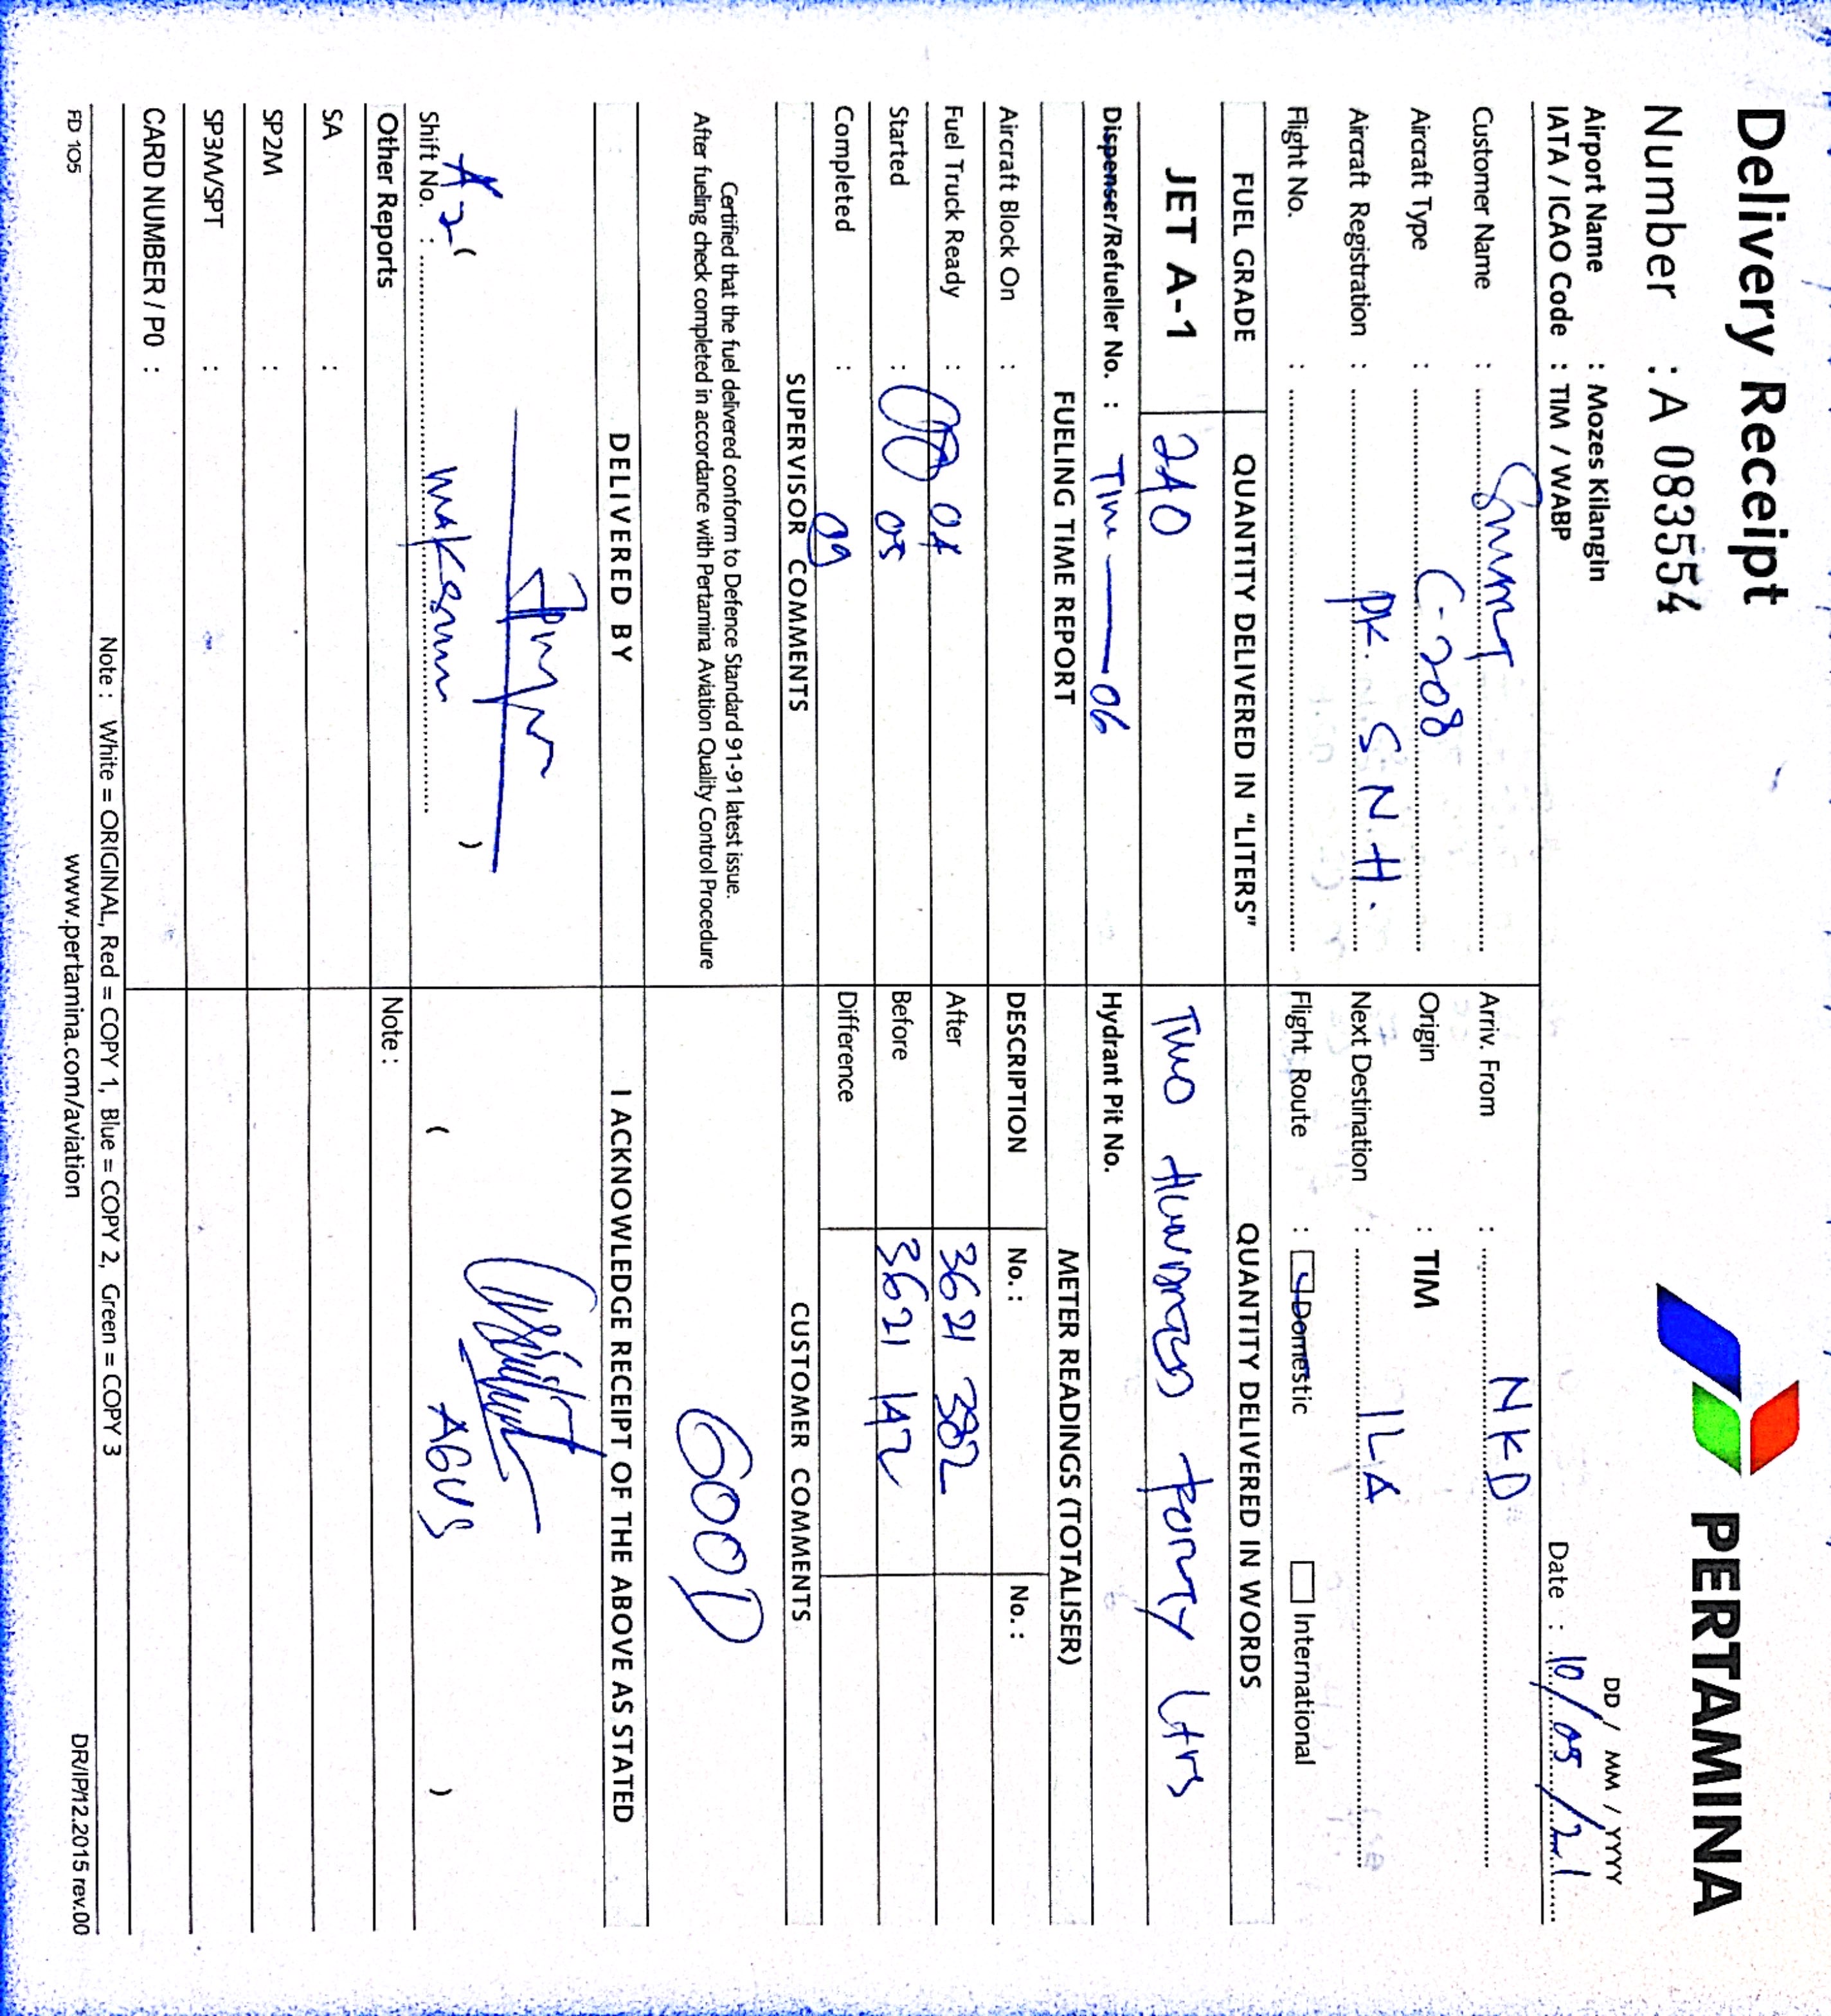 Delivery Receipt
PERTAMINA
Number : A 083554
DD / MM / YYYY
Airport Name : Mozes Kilangin
IATA / ICAO Code : TIM / WABP
Date : 10/05/21
Customer Name : Smart
Arriv. From : NKD
Aircraft Type : C-208
Origin : TIM
Aircraft Registration : PK. SNH.
Next Destination : ILA
Flight No. :
Flight Route : Domestic International
FUEL GRADE QUANTITY DELIVERED IN "LITERS" QUANTITY DELIVERED IN WORDS
JET A-1 240 Two Hundred Forty Ltrs
Dispenser/Refueller No. : Tim — 06 Hydrant Pit No.
FUELING TIME REPORT METER READINGS (TOTALISER)
Aircraft Block On : DESCRIPTION No. : No. :
Fuel Truck Ready : 04 After 3621 382
Started : 05 Before 3621 142
Completed : 09 Difference
SUPERVISOR COMMENTS CUSTOMER COMMENTS
Certified that the fuel delivered conform to Defence Standard 91-91 latest issue.
After fueling check completed in accordance with Pertamina Aviation Quality Control Procedure
GOOD
DELIVERED BY I ACKNOWLEDGE RECEIPT OF THE ABOVE AS STATED
Shift No. : ( ) ( AGUS )
Other Reports Note :
SA :
SP2M :
SP3M/SPT :
CARD NUMBER / P0 :
Note : White = ORIGINAL, Red = COPY 1, Blue = COPY 2, Green = COPY 3
FD 105 www.pertamina.com/aviation DR/IP/12.2015 rev.00